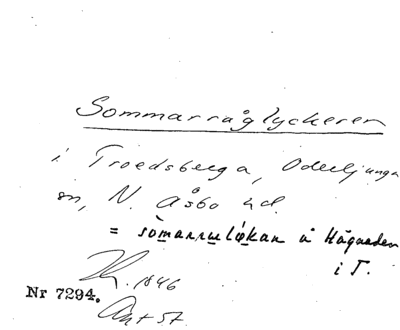 Sommarråglyckeren
i Troedsberga, Oderljunga
sn, N. Åsbo hd.
= sòmarrulykan å Hågnaden
i T.
1846
Nr 7294.
Ant 57